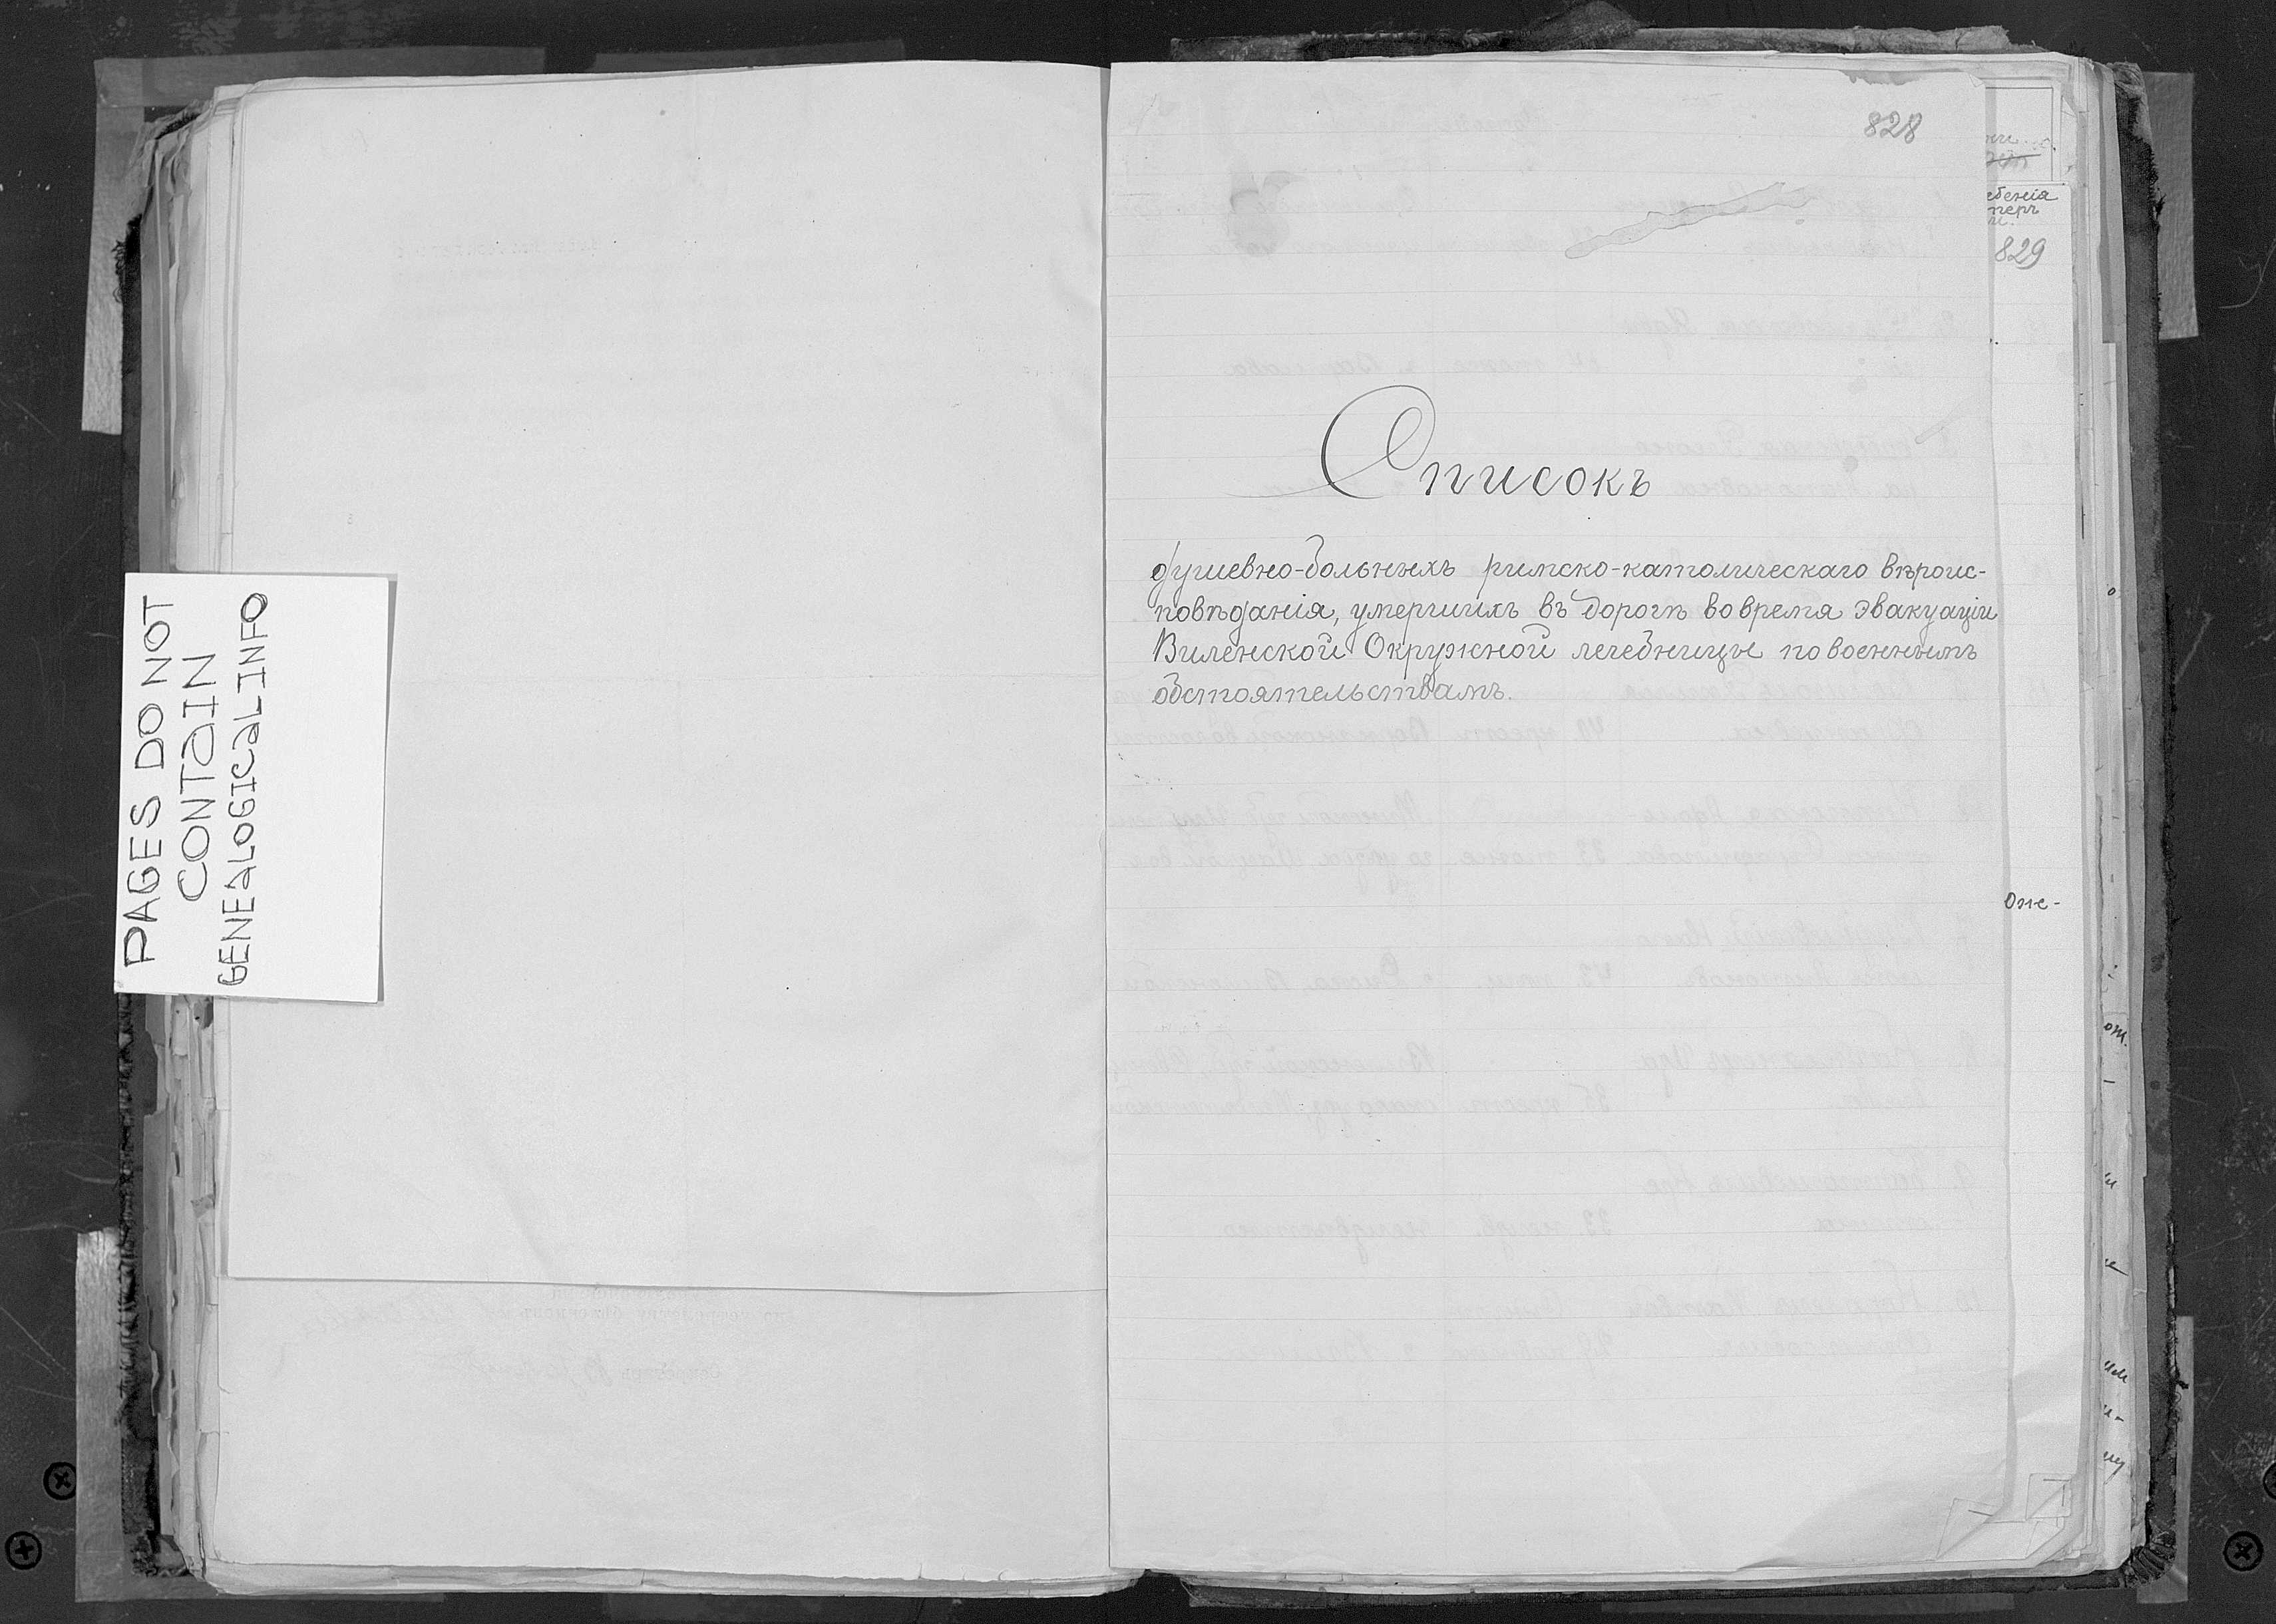 PAGES DO NOT
CONTAIN
GENEALOGICAL INFO
828
829
Списокъ
душевно-больныхъ римско-католическаго вѣроис-
повѣданія, умершихъ въ дорогѣ во время эвакуаціи
Виленской Окружной лечебницы по военнымъ
обстоятельствамъ.